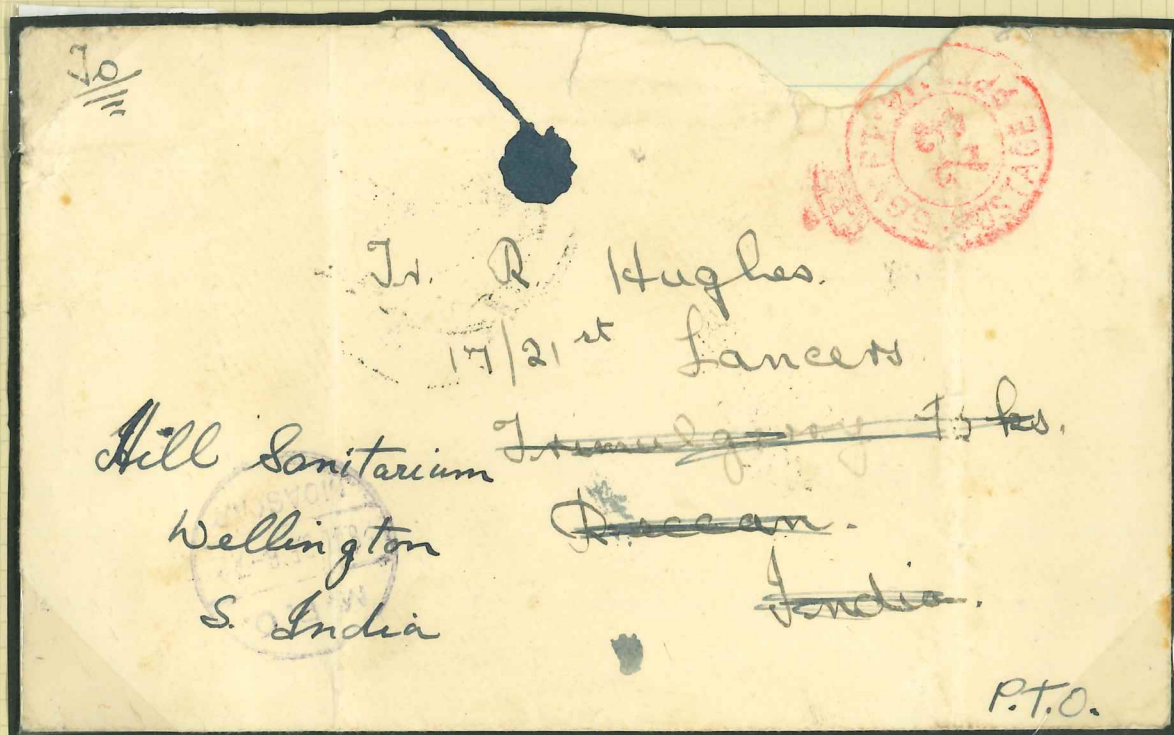 To
Tr. R. Hughes.
17/21st Lancers
Trimulgerry Bks.
Deccan.
India.
Hill Sanitarium
Wellington
S. India
P.T.O.
EGYPT
POSTAGE
MOASCAR